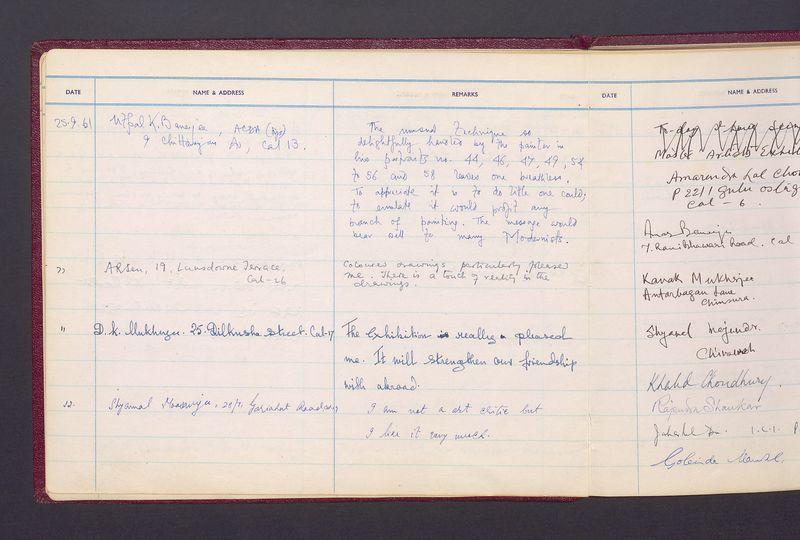 DATE NAME & ADDRESS REMARKS DATE NAME & ADDRESS
25.9.61 Utpal K. Banerjee, ACDA
9 Chittaranjan Av, Cal 13.
The unusual technique so
delightfully handled by the painter in
his no. 44, 46, 47, 49, 54
to 56 and 58 leaves one breathless.
To appreciate it is to do little one could;
to emulate it would profit any
branch of painting. The message would
bear well for many Modernists.
" A R Sen, 19, Lansdowne Terrace,
Cal-26
Coloured drawings particularly pleased
me. There is a touch of reality in the
drawings.
" D. K. Mukherjee. 25. Dilkusha Street. Cal-17
The Exhibition is really pleased
me. It will strengthen our friendship
with abroad.
Shyamal Gariahat Road
I am not a art critic but
I like it very much.
To-day
Master Artists
Amarendra Lal
P 22/1
Cal - 6.
Banerjee
7. Road. Cal
Kanak Mukherjee
Antarbagan Lane
Chinsura.
Shyamal
Khalid Choudhury.
Rajendra Shankar
Gobinda